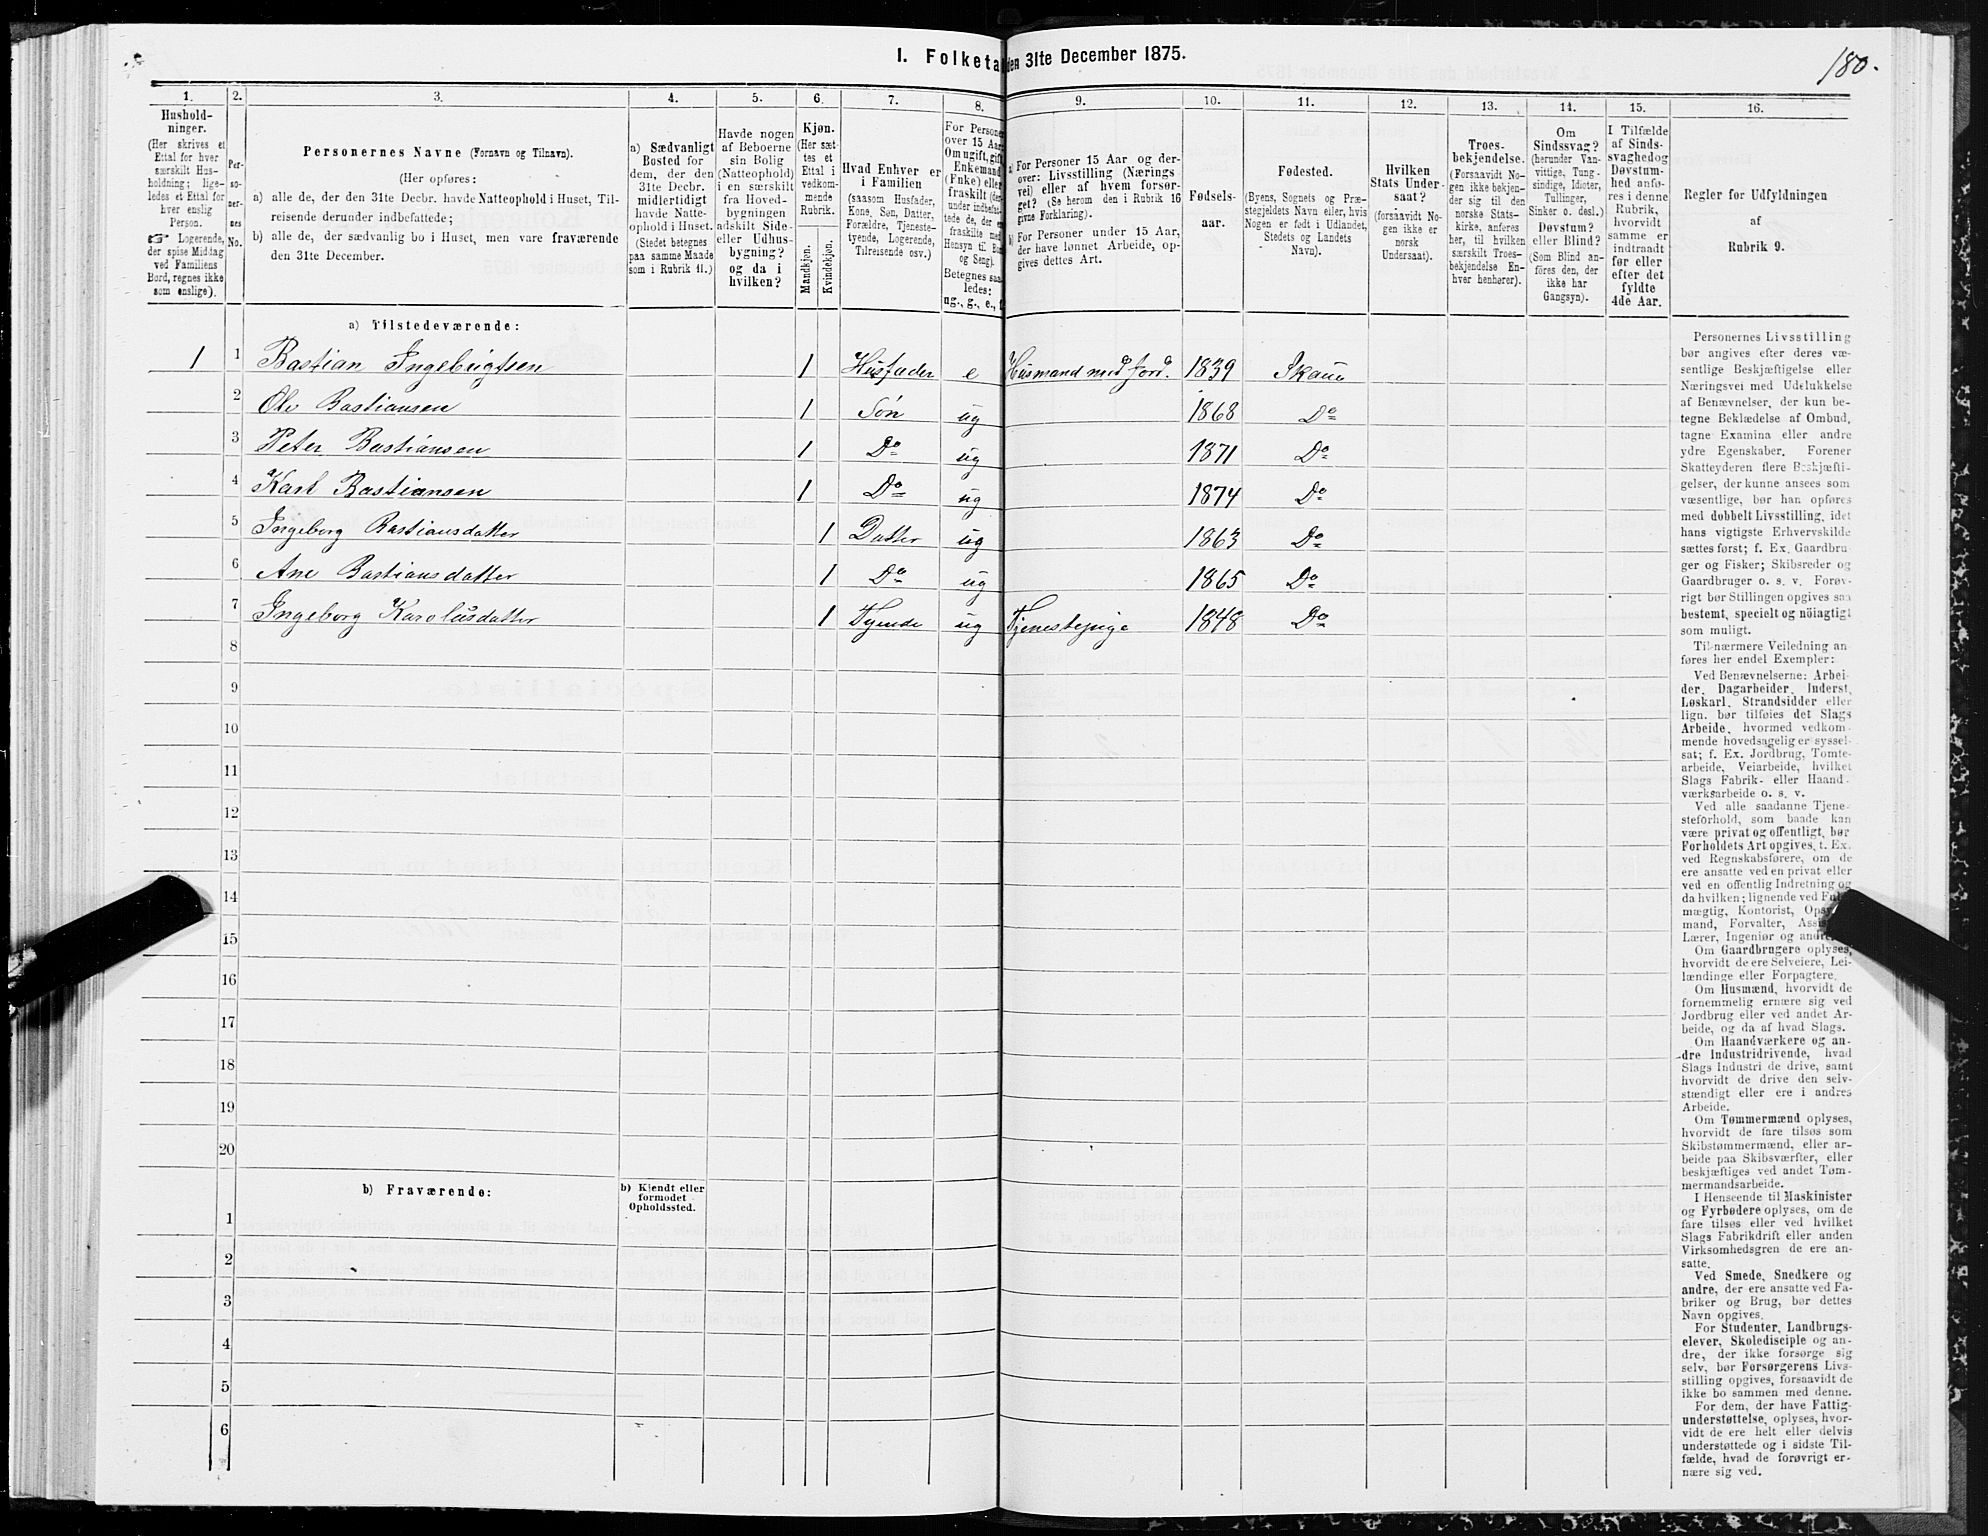 I. Folketa
den 31te December 1875.
180.
1.
2.
3.
4.
5.
6.
7.
8.
9.
10.
11.
12.
13.
14.
15.
16.
Hushold-
ninger.
(Her skrives et
Ettal for hver
særskilt Hus-
holdning; lige-
ledes et Ettal for
hver enslig
Person.
☞ Logerende,
der spise Middag
ved Familiens
Bord, regnes ikke
som enslige).
Per-
so-
ner-
nes
No.
Personernes Navne (Fornavn og Tilnavn).
(Her opføres:
a) alle de, der den 31te Decbr. havde Natteophold i Huset, Til-
reisende derunder indbefattede;
b) alle de, der sædvanlig bo i Huset, men vare fraværende
den 31te December.
a) Sædvanligt
Bosted for
dem, der den
31te Decbr.
midlertidigt
havde Natte-
ophold i Huset.
(Stedet betegnes
paa samme Maade
som i Rubrik 11.)
Havde nogen
af Beboerne
sin Bolig
(Natteophold)
i en særskilt
fra Hoved-
bygningen
adskilt Side-
eller Udhus-
bygning?
og da i
hvilken?
Kjøn.
(Her sæt-
tes et
Ettal i
vedkom-
mende
Rubrik.
Mandkjøn.
Kvindekjøn.
Hvad Enhver er
i Familien
(saasom Husfader,
Kone, Søn, Datter,
Forældre, Tjeneste-
tyende, Logerende,
Tilreisende osv.)
For Persone
over 15 Aar
Om ugift, gift,
Enkemand
(Enke) eller
fraskilt (der-
under indbefat-
tede de, der er
fraskilte med
Hensyn til Bo
og Seng).
Betegnes saa-
ledes:
ug., g., e., f.
a) For Personer 15 Aar og der-
over: Livsstilling (Nærings
vei) eller af hvem forsør-
get? (Se herom den i Rubrik 16
givne Forklaring).
b) For Personer under 15 Aar,
der have lønnet Arbeide, op-
gives dettes Art.
Fødsels-
aar.
Fødested.
(Byens, Sognets og Præ-
stegjeldets Navn eller, hvis
Nogen er født i Udlandet,
Stedets og Landets
Navn).
Hvilken
Stats Under-
saat?
(forsaavidt No-
gen ikke er
norsk
Undersaat).
Troes-
bekjendelse.
(Forsaavidt No-
gen ikke bekjen-
der sig til den
norske Stats-
kirke, anføres
her, til hvilken
særskilt Troes-
bekjendelse En-
hver henhører).
Om
Sindssvag?
(herunder Van-
vittige, Tung-
sindige, Idioter,
Tullinger,
Sinker o. desl.)
Døvstum?
eller Blind?
(Som Blind an-
føres den, der
ikke har
Gangsyn).
I Tilfælde
af Sinds-
svaghed og
Døvstum-
hed anfø-
res i denne
Rubrik,
hvorvidt
samme er
indtraadt
før eller
efter det
fyldte
4de Aar.
Regler for Udfyldningen
af
Rubrik 9.
a) Tilstedeværende:
1 1 Bastian Ingebrigtsen 1 Husfader e Husmand med Jord. 1839 Skaun
2 Ole Bastiansen 1 Søn ug 1868 Do
3 Peter Bastiansen 1 Do ug 1871 Do
4 Karl Bastiansen 1 Do ug 1874 Do
5 Ingeborg Bastiansdatter 1 Datter ug 1863 Do
6 Ane Bastiansdatter 1 Do ug 1865 Do
7 Ingeborg Karolusdatter 1 Tyende ug Tjenestepige 1848 Do
8
9
10
11
12
13
14
15
16
17
18
19
20
b) Fraværende:
b) Kjendt eller
formodet
Opholdssted.
1
2
3
4
5
6
Personernes Livsstilling
bør angives efter deres væ-
sentlige Beskjæftigelse eller
Næringsvei med Udelukkelse
af Benævnelser, der kun be-
tegne Beklædelse af Ombud,
tagne Examina eller andre
ydre Egenskaber. Forener
Skatteyderen flere Beskjæfti-
gelser, der kunne ansees som
væsentlige, bør han opføres
med dobbelt Livsstilling, idet
hans vigtigste Erhvervskilde
sættes først; f. Ex. Gaardbru-
ger og Fisker; Skibsreder og
Gaardbruger o. s. v. Forøv-
rigt bør Stillingen opgives saa
bestemt, specielt og nöiagtigt
som muligt.
Til nærmere Veiledning an-
føres her endel Exempler:
Ved Benævnelserne: Arbei-
der, Dagarbeider, Inderst,
Løskarl, Strandsidder eller
lign. bør tilføies det Slags
Arbeide, hvormed vedkom-
mende hovedsagelig er syssel-
sat; f. Ex. Jordbrug, Tomte-
arbeide, Veiarbeide, hvilket
Slags Fabrik- eller Haand-
værksarbeide o. s. v.
Ved alle saadanne Tjene-
steforhold, som baade kan
være privat og offentligt, bør
Forholdets Art opgives, t. Ex.
ved Regnskabsførere, om de
ere ansatte ved en privat eller
ved en offentlig Indretning og
da hvilken; lignende ved Ful-
mægtig, Kontorist, Opsy
mand, Forvalter, Assi
Lærer, Ingeniør og andre.
Om Gaardbrugere oplyses,
hvorvidt de ere Selveiere, Lei-
lændinge eller Forpagtere.
Om Husmænd, hvorvidt de
fornemmelig ernære sig ved
Jordbrug eller ved andet Ar-
beide, og da af hvad Slags.
Om Haandværkere og an-
dre Industridrivende, hvad
Slags Industri de drive, samt
hvorvidt de drive den selv-
stændigt eller ere i andres
Arbeide.
Om Tømmermænd oplyses,
hvorvidt de fare tilsøs som
Skibstømmermænd, eller ar-
beide paa Skibsværfter, eller
beskjæftiges ved andet Tøm-
mermandsarbeide.
I Henseende til Maskinister
og Fyrbødere oplyses, om de
fare tilsøs eller ved hvilket
Slags Fabrikdrift eller anden
Virksomhedsgren de ere an-
satte.
Ved Smede, Snedkere og
andre, der ere ansatte ved Fa-
briker og Brug, bør dettes
Navn opgives.
For Studenter, Landbrugs-
elever, Skoledisciple og an-
dre, der ikke forsørge sig
selv, bør Forsørgerens Livs-
stilling opgives, forsaavidt de
ikke bo sammen med denne.
For dem, der have Fattig-
understøttelse, oplyses, hvor-
vidt de ere helt eller delvis
understøttede og i sidste Til-
fælde, hvad de forøvrigt er-
nære sig ved.